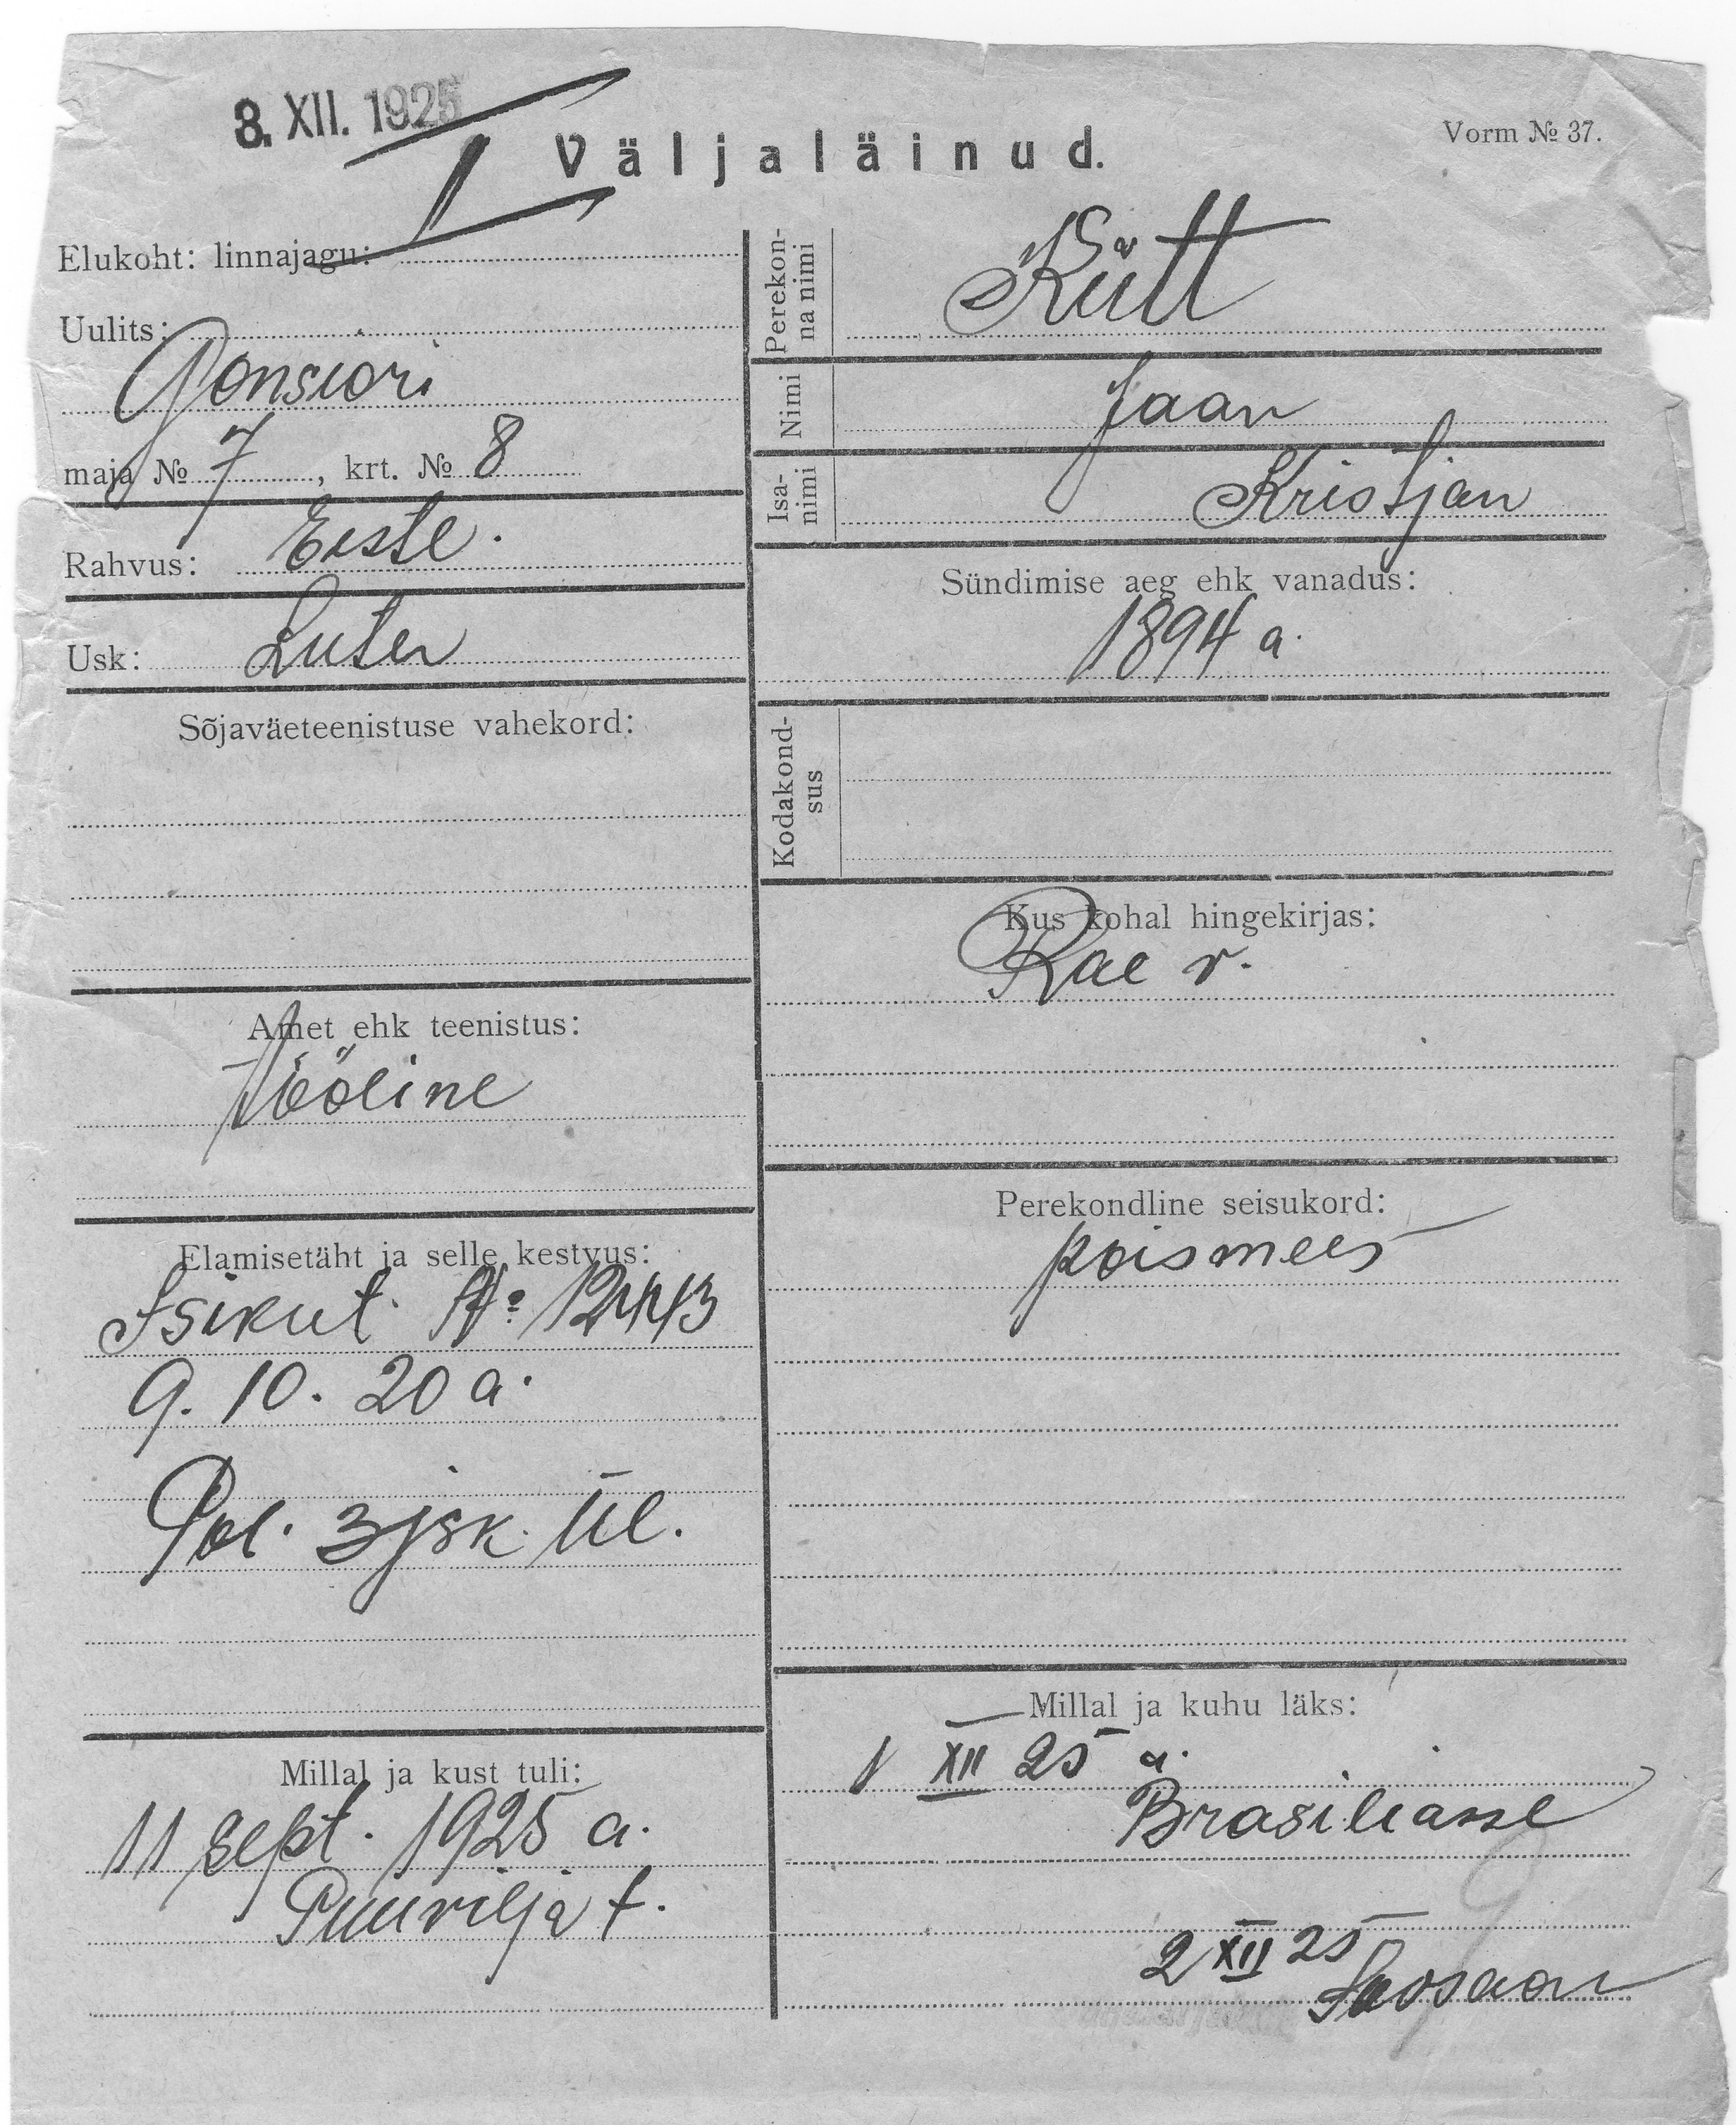 8. XII. 1925
Väljaläinud.
Vorm № 37.
Elukoht: linnajagu:
Uulits:
Gonsiori
maja № 7, krt. № 8
Rahvus: Eesti.
Usk: Luter
Sõjaväeteenistuse vahekord:
Amet ehk teenistus:
Tööline
Elamisetäht ja selle kestvus:
Isikut. № 12443
9. 10. 20 a.
Pol. 3 jsk. ül.
Millal ja kust tuli:
11 sept. 1925 a.
Puuvilja t.
Perekon-
na nimi
Kütt
Nimi
Jaan
Isa-
nimi
Kristjan
Sündimise aeg ehk vanadus:
1894 a.
Kodakond-
sus
Kus kohal hingekirjas:
Rae v.
Perekondline seisukord:
poismees
Millal ja kuhu läks:
1 XII 25 a.
Brasiliasse
2 XII 25